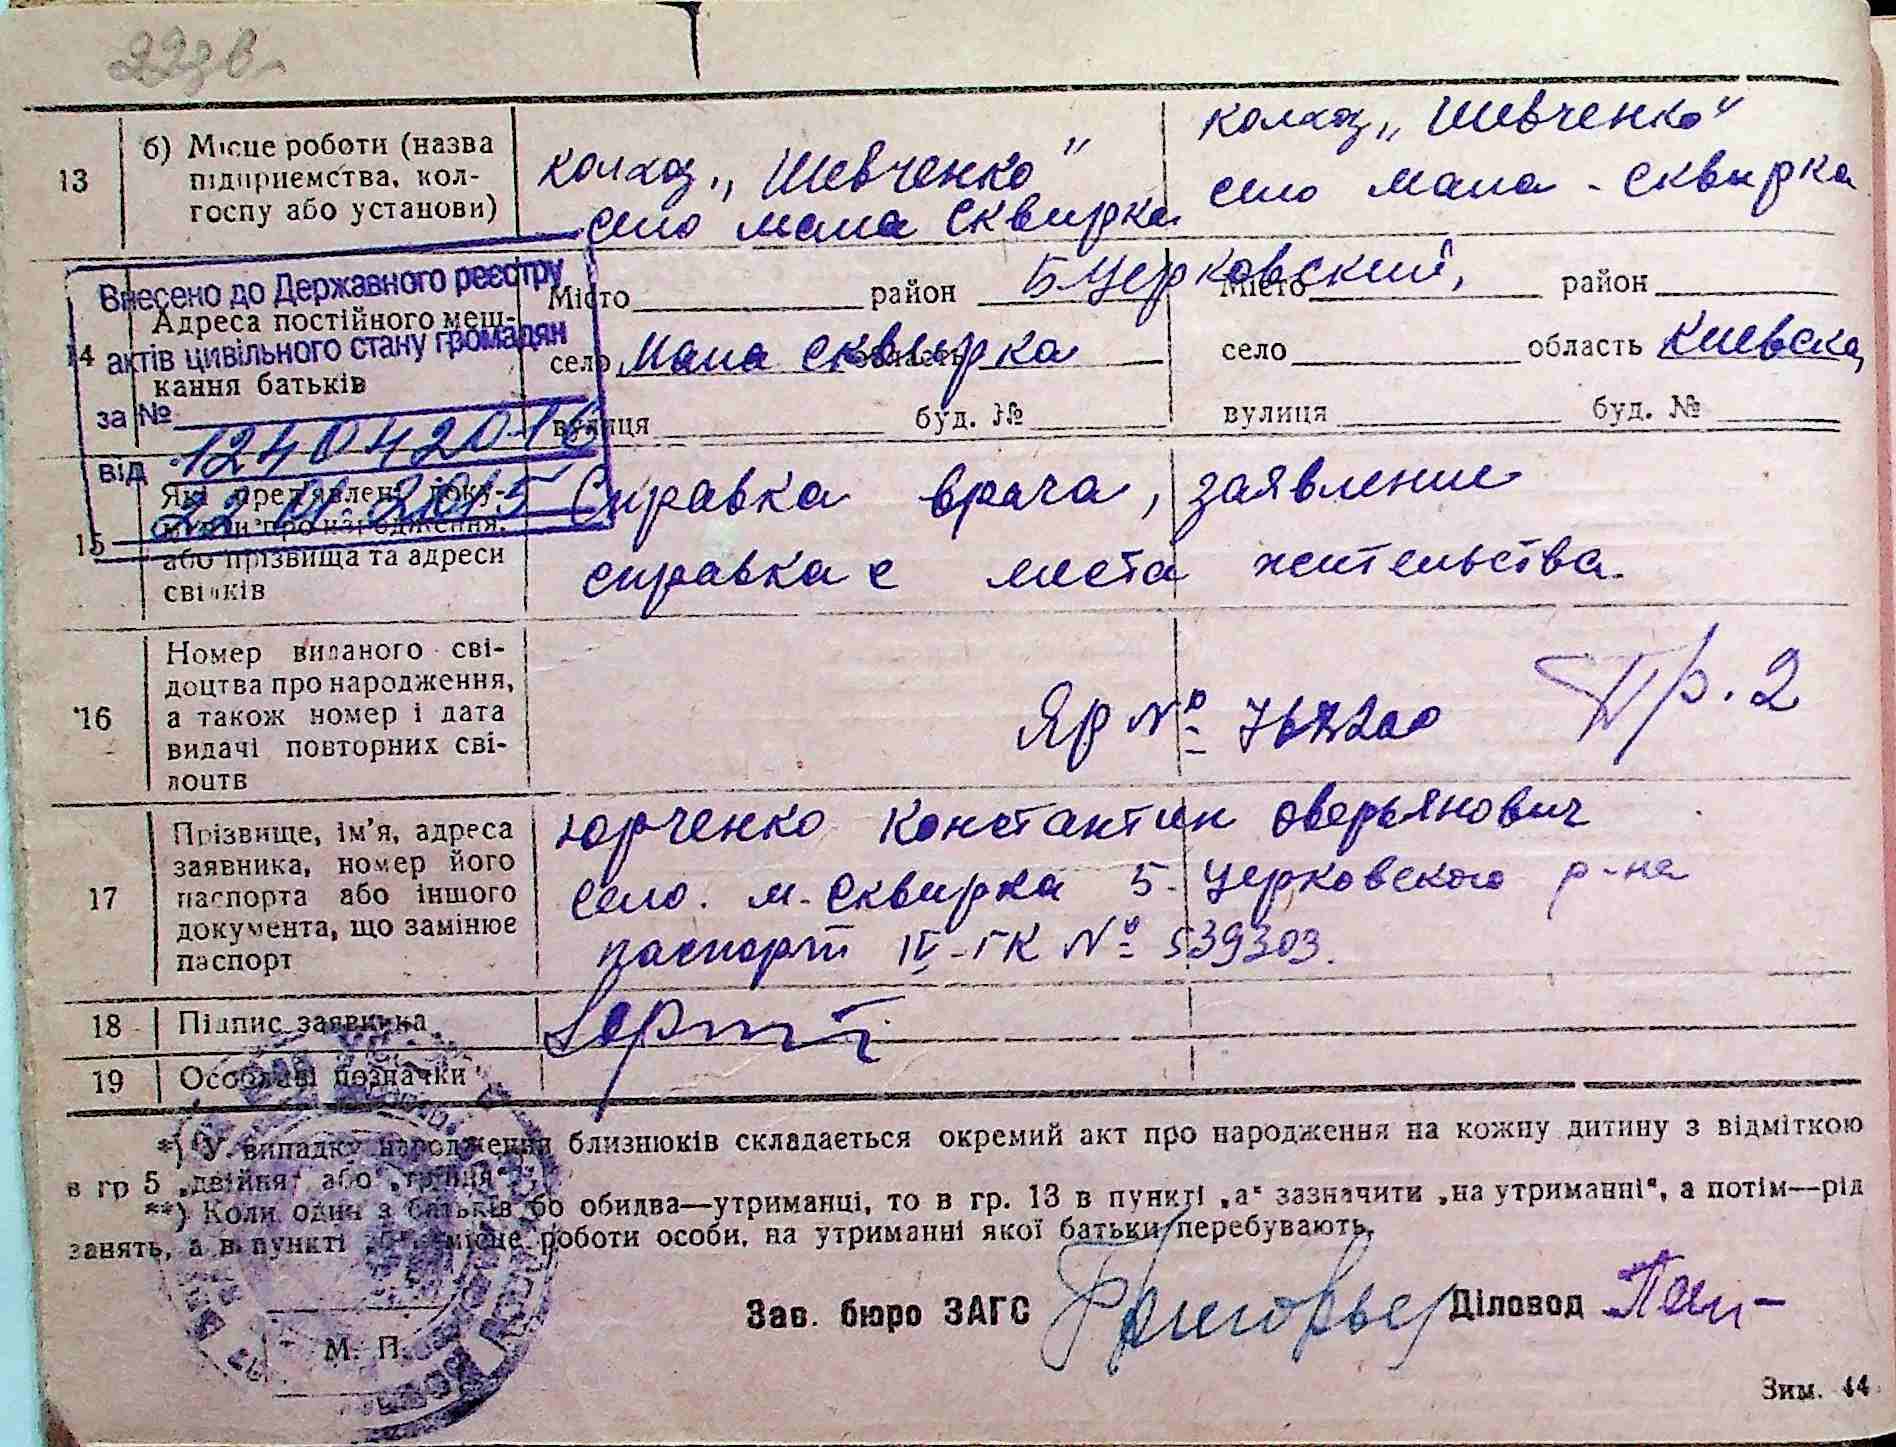 22дв.
13
б) Місце роботи (назва
підприємства, кол-
госпу або установи)
колхоз „Шевченко"
село мала Сквирка
колхоз „Шевченко"
село мала - сквырка
Внесено до Державного реєстру
актів цивільного стану громадян
за № 1240420 16
від 22 01 2015
14
Адреса постійного меш-
кання батьків
Місто район Б Церковский,
село Мала сквырка область
вулиця буд. №
Місто район
село область Киевска
вулиця буд. №
15
Які пред'явлені доку-
менти про народження,
або прізвища та адреси
свідків
Справка врача, заявление
справка с места жительства.
16
Номер виданого сві-
доцтва про народження,
а також номер і дата
видачі повторних сві-
доцтв
Яр №
Пр. 2
17
Прізвище, ім'я, адреса
заявника, номер його
паспорта або іншого
документа, що замінює
паспорт
Юрченко Константин Оверьянович
село. м. Сквирка Б. Церковского р-на
паспорт IV-ГК № 539303.
18
Підпис заявника
19
Особливі позначки
*) У випадку народження близнюків складається окремий акт про народження на кожну дитину з відміткою
в гр 5 „двійня" або „трійня".
**) Коли один з батьків або обидва—утриманці, то в гр. 13 в пункті „а" зазначити „на утриманні", а потім—рід
занять, а в пункті „б" місце роботи особи, на утриманні якої батьки перебувають.
Зав. бюро ЗАГС
Діловод
М. П.
Зим. 44